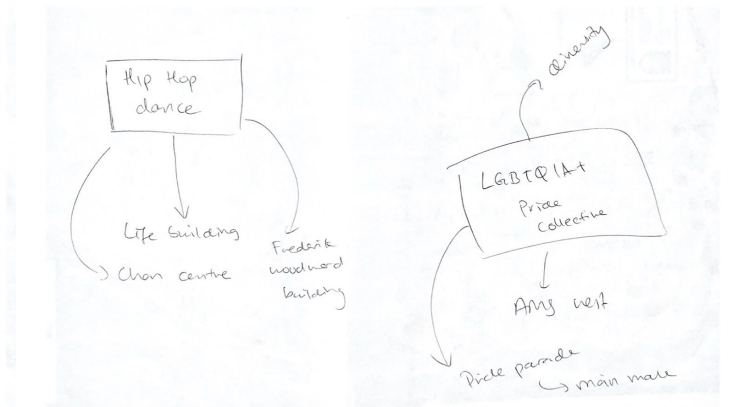 Hip Hop
dance
Life building
Chan centre
Frederik
woodward
building
diversity
LGBTQIA+
Pride
Collective
AMS nest
Pride parade
main mall